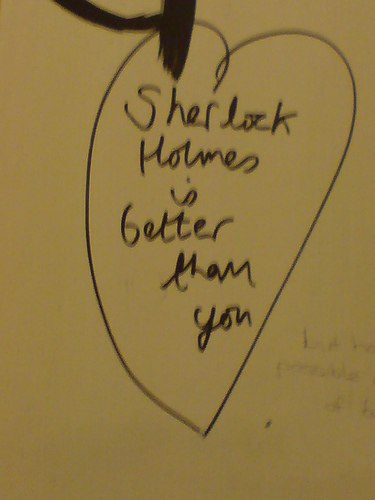 Sherlock
Holmes
is
better
than
you
but he
of